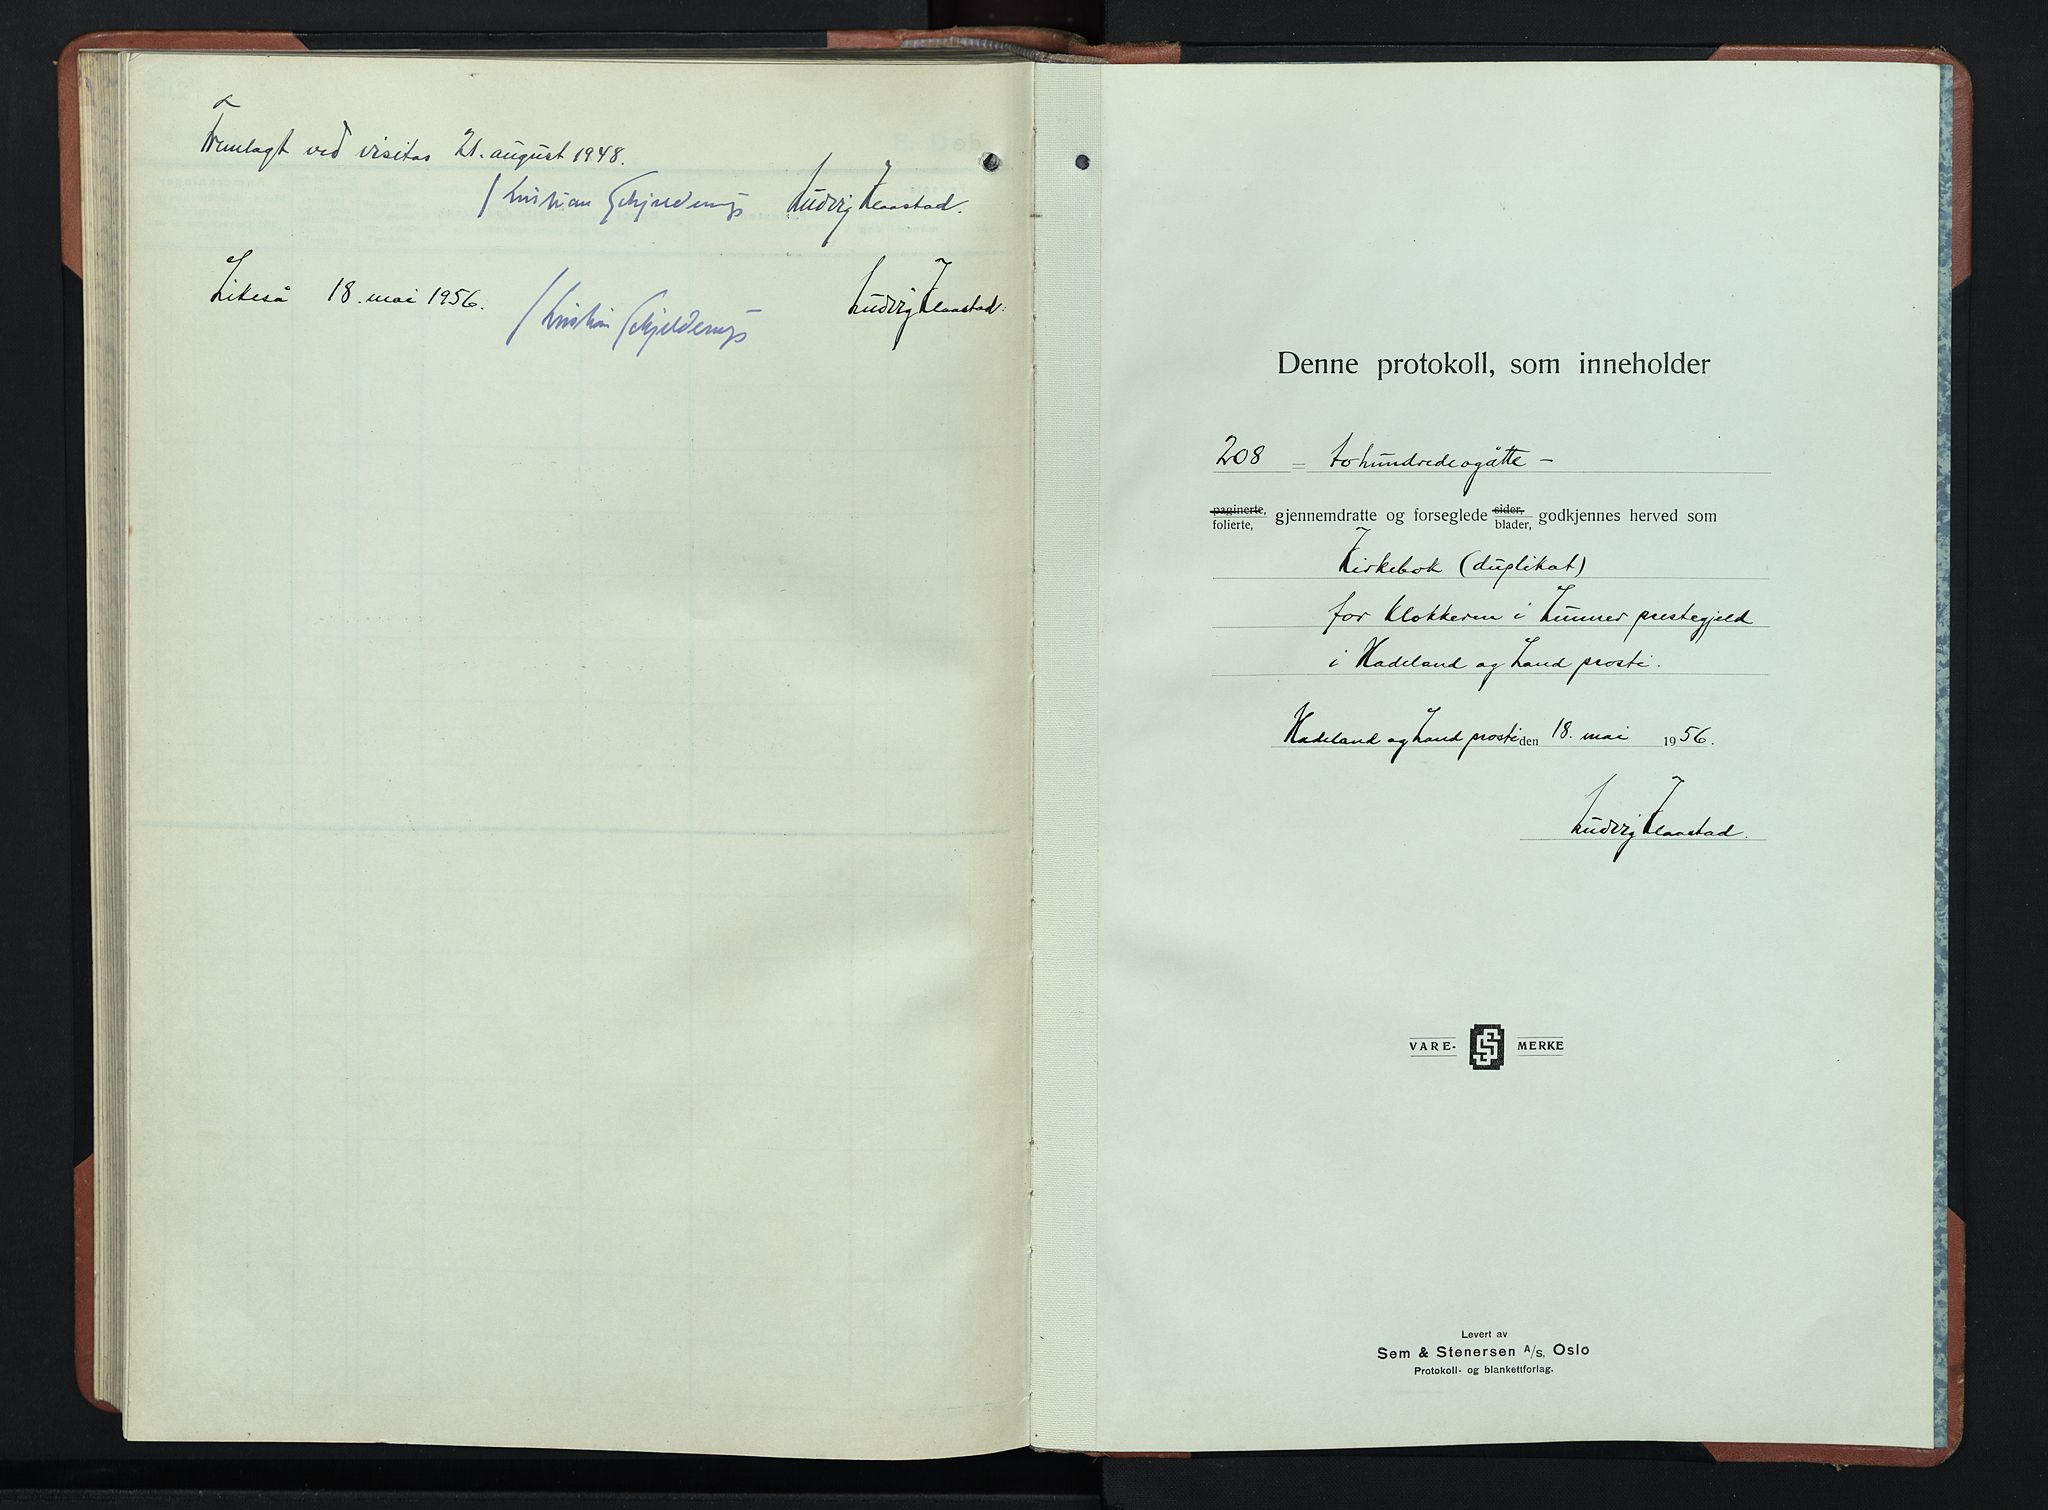 Fremlagt ved visitas 21. august 1948.
Kristian Schjelderup Ludvig Klaastad.
Likeså 18. mai 1956. Kristian Schjelderup Ludvig Klaastad.
Denne protokoll, som inneholder
208 = tohundredeogåtte —
paginerte, folierte, gjennemdratte og forseglede sider, blader, godkjennes herved som
Kirkebok (duplikat)
for klokkeren i Lunner prestegjeld
i Hadeland og Land prosti.
Hadeland og Land prosti den 18. mai 1956.
Ludvig Klaastad.
VARE- S MERKE
Levert av
Sem & Stenersen A/s, Oslo
Protokoll- og blankettforlag.